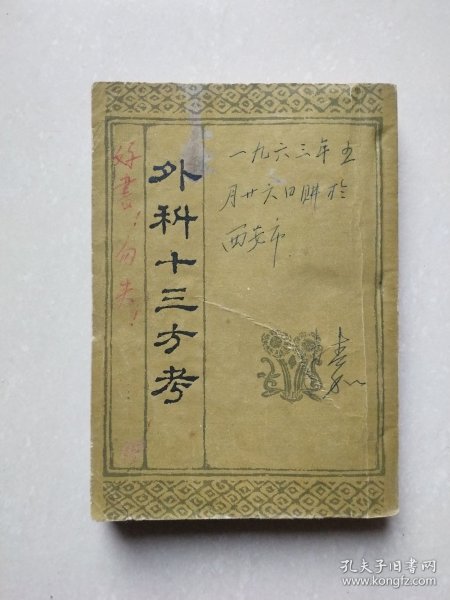 外科十三方考
一九六三年五
月廿六日購於
西安市
好書！勿失！
孔夫子旧书网
www.kongfz.com